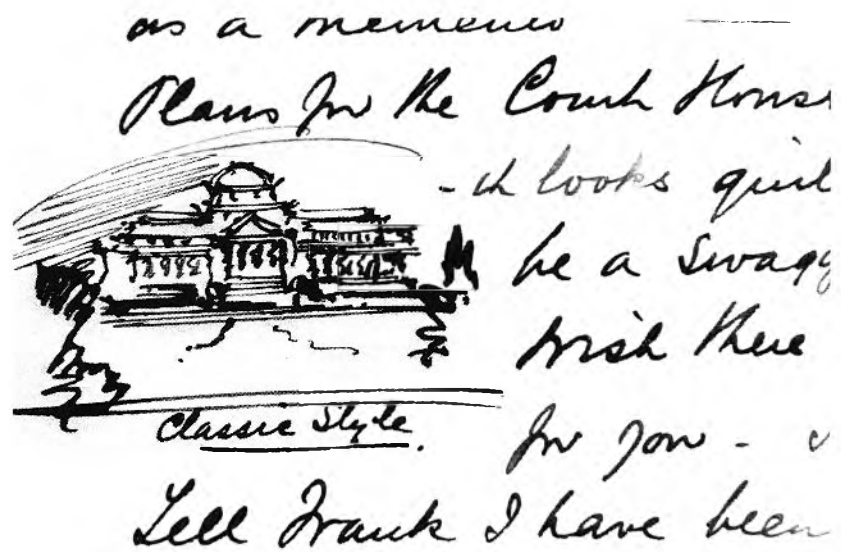 as a memento
Plans for the Court Hous
-ch looks quit
be a Swagg
Wish there
for you -
Classic Style.
Tell Frank I have been